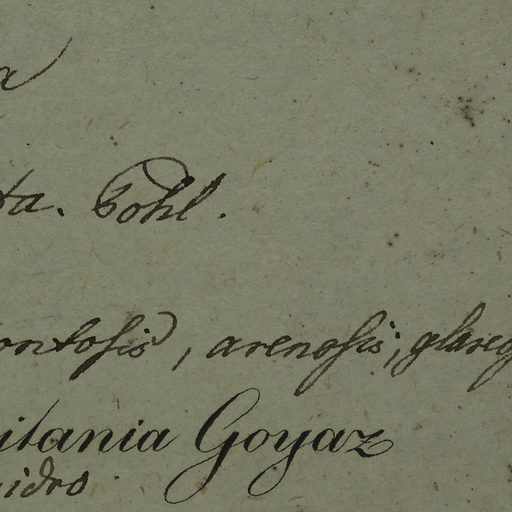 a
ta. Pohl.
ontosis, arenosis, glareo
itania Goyaz
idro